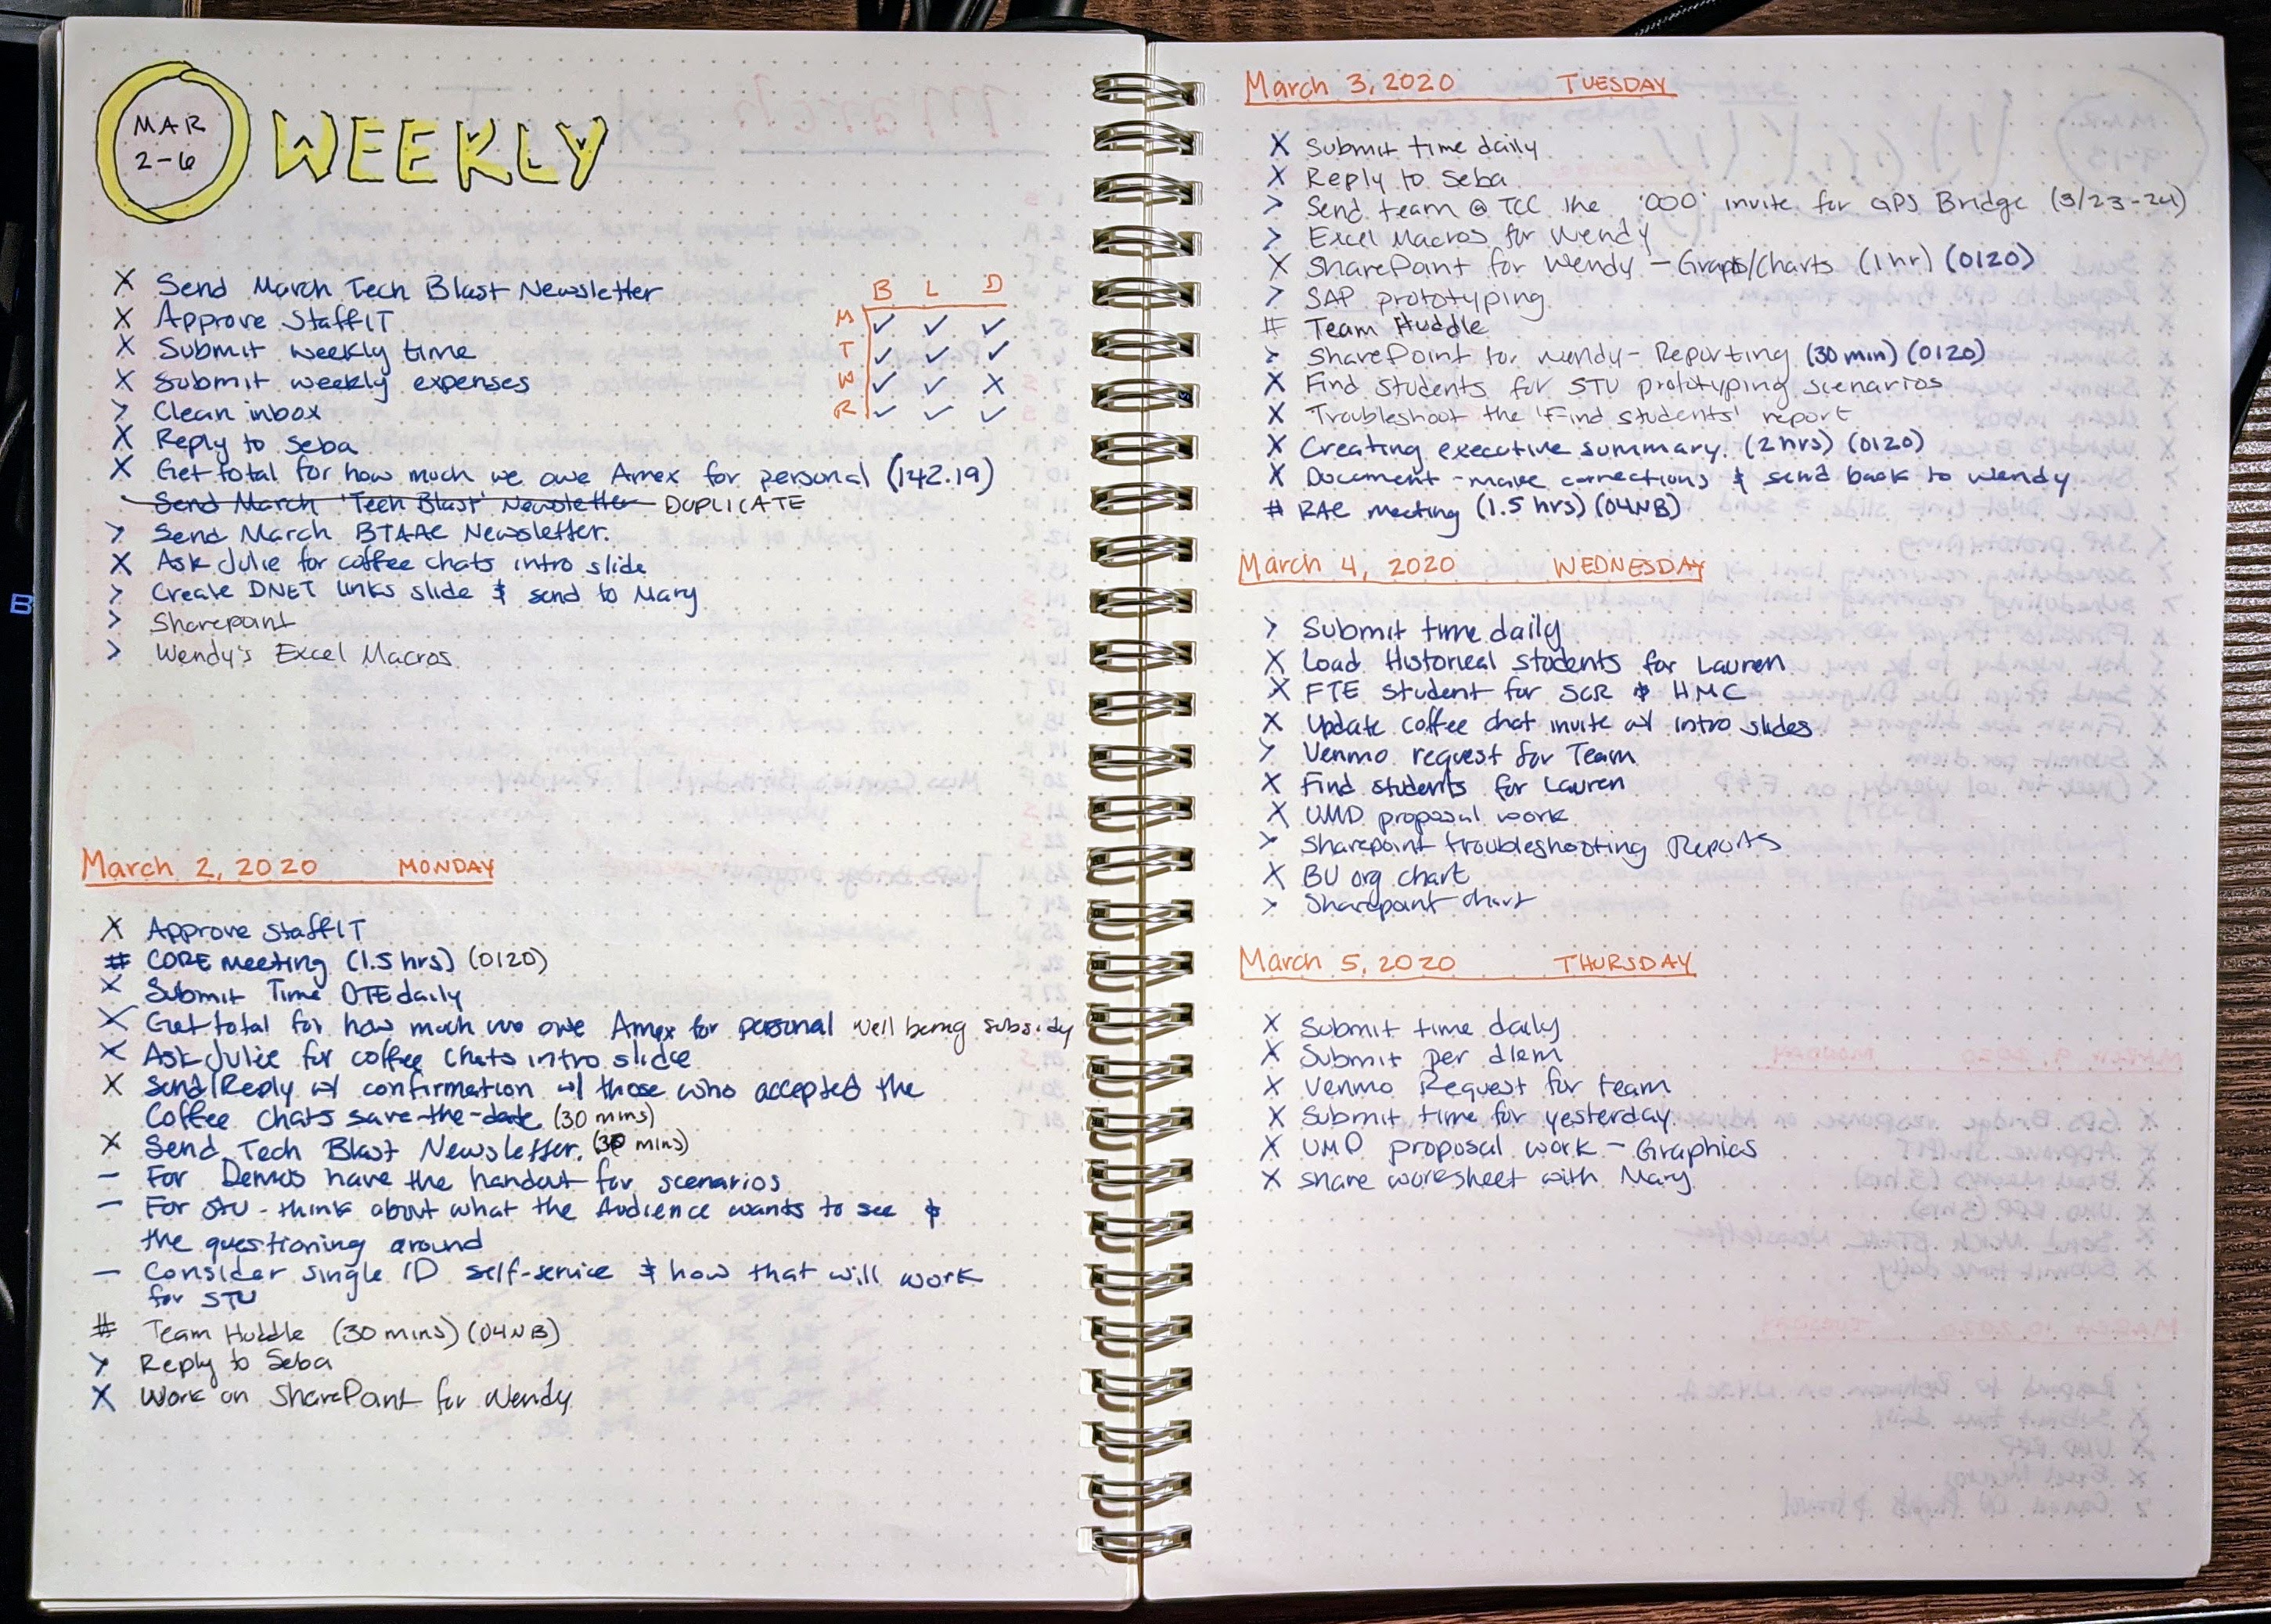 MAR
2-6
WEEKLY
X Send March Tech Blast Newsletter
X Approve StaffIT
X Submit weekly time
X Submit weekly expenses
> Clean inbox
X Reply to Seba
X Get total for how much we owe Amex for personal (142.19)
Send March 'Tech Blast' Newsletter DUPLICATE
> Send March BTAAC Newsletter.
X Ask Julie for coffee chats intro slide
> Create DNET links slide & send to Mary
> Sharepoint
> Wendy's Excel Macros
B L D
M ✓ ✓ ✓
T ✓ ✓ ✓
W ✓ ✓ X
R ✓ ✓ ✓
March 2, 2020 MONDAY
X Approve staffIT
# CORE meeting (1.5 hrs) (0120)
X Submit Time DTE daily
X Get total for how much we owe Amex for personal well being subsidy
X Ask Julie for coffee chats intro slide
X Send/Reply w/ confirmation w/ those who accepted the
Coffee chats save-the-date (30 mins)
X Send Tech Blast Newsletter. (30 mins)
- For Demos have the handout for scenarios
- For STU - think about what the Audience wants to see &
the questioning around
- Consider single ID self-service & how that will work
for STU
# Team Huddle (30 mins) (04NB)
> Reply to Seba
X Work on SharePoint for Wendy
March 3, 2020 TUESDAY
X Submit time daily
X Reply to Seba
> Send team @ TCC the 'OOO' invite for GPS Bridge (3/23-24)
> Excel Macros for Wendy
X SharePoint for Wendy - Graphs/Charts (1 hr) (0120)
> SAP prototyping
# Team Huddle
> SharePoint for Wendy - Reporting (30 min) (0120)
X Find students for STU prototyping scenarios
X Troubleshoot the 'Find students' report
X Creating executive summary. (2 hrs) (0120)
X Document - make corrections & send back to Wendy
# RAC meeting (1.5 hrs) (04NB)
March 4, 2020 WEDNESDAY
> Submit time daily
X Load Historical students for Lauren
X FTE student for SCR & HMC
X Update coffee chat invite w/ intro slides
> Venmo request for Team
X Find students for Lauren
X UMD proposal work
> Sharepoint troubleshooting Reports
X BU org chart
> Sharepoint chart
March 5, 2020 THURSDAY
X Submit time daily
X Submit per diem
X Venmo Request for team
X Submit time for yesterday
X UMD proposal work - Graphics
X Share worksheet with Mary